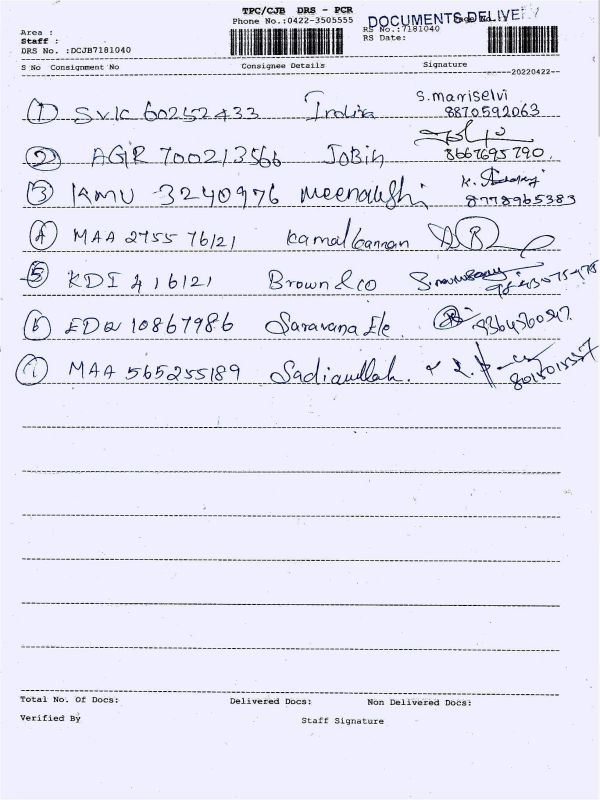 TPC/CJB DRS - PCR
Phone No.:0422-3505555
DOCUMENTS DELIVE
Area :
RS No.:7181040
Staff :
RS Date:
DRS No. :DCJB7181040
S No Consignment No Consignee Details Signature
20220422
1 SVK 60252433 Indira S. mariselvi
8870592063
2 AGR 700213566 Jobin 8667695790.
3 KMU 3240976 meenakshi K.
8778965383
4 MAA 2755 76121 Kamal kannan
5 KDI 416121 Brown & co
6 EDQ 10867986 Saravana Ele 9364360547
7 MAA 565255189 Sadiqullah.
8015015357
Total No. Of Docs: Delivered Docs: Non Delivered Docs:
Verified By Staff Signature